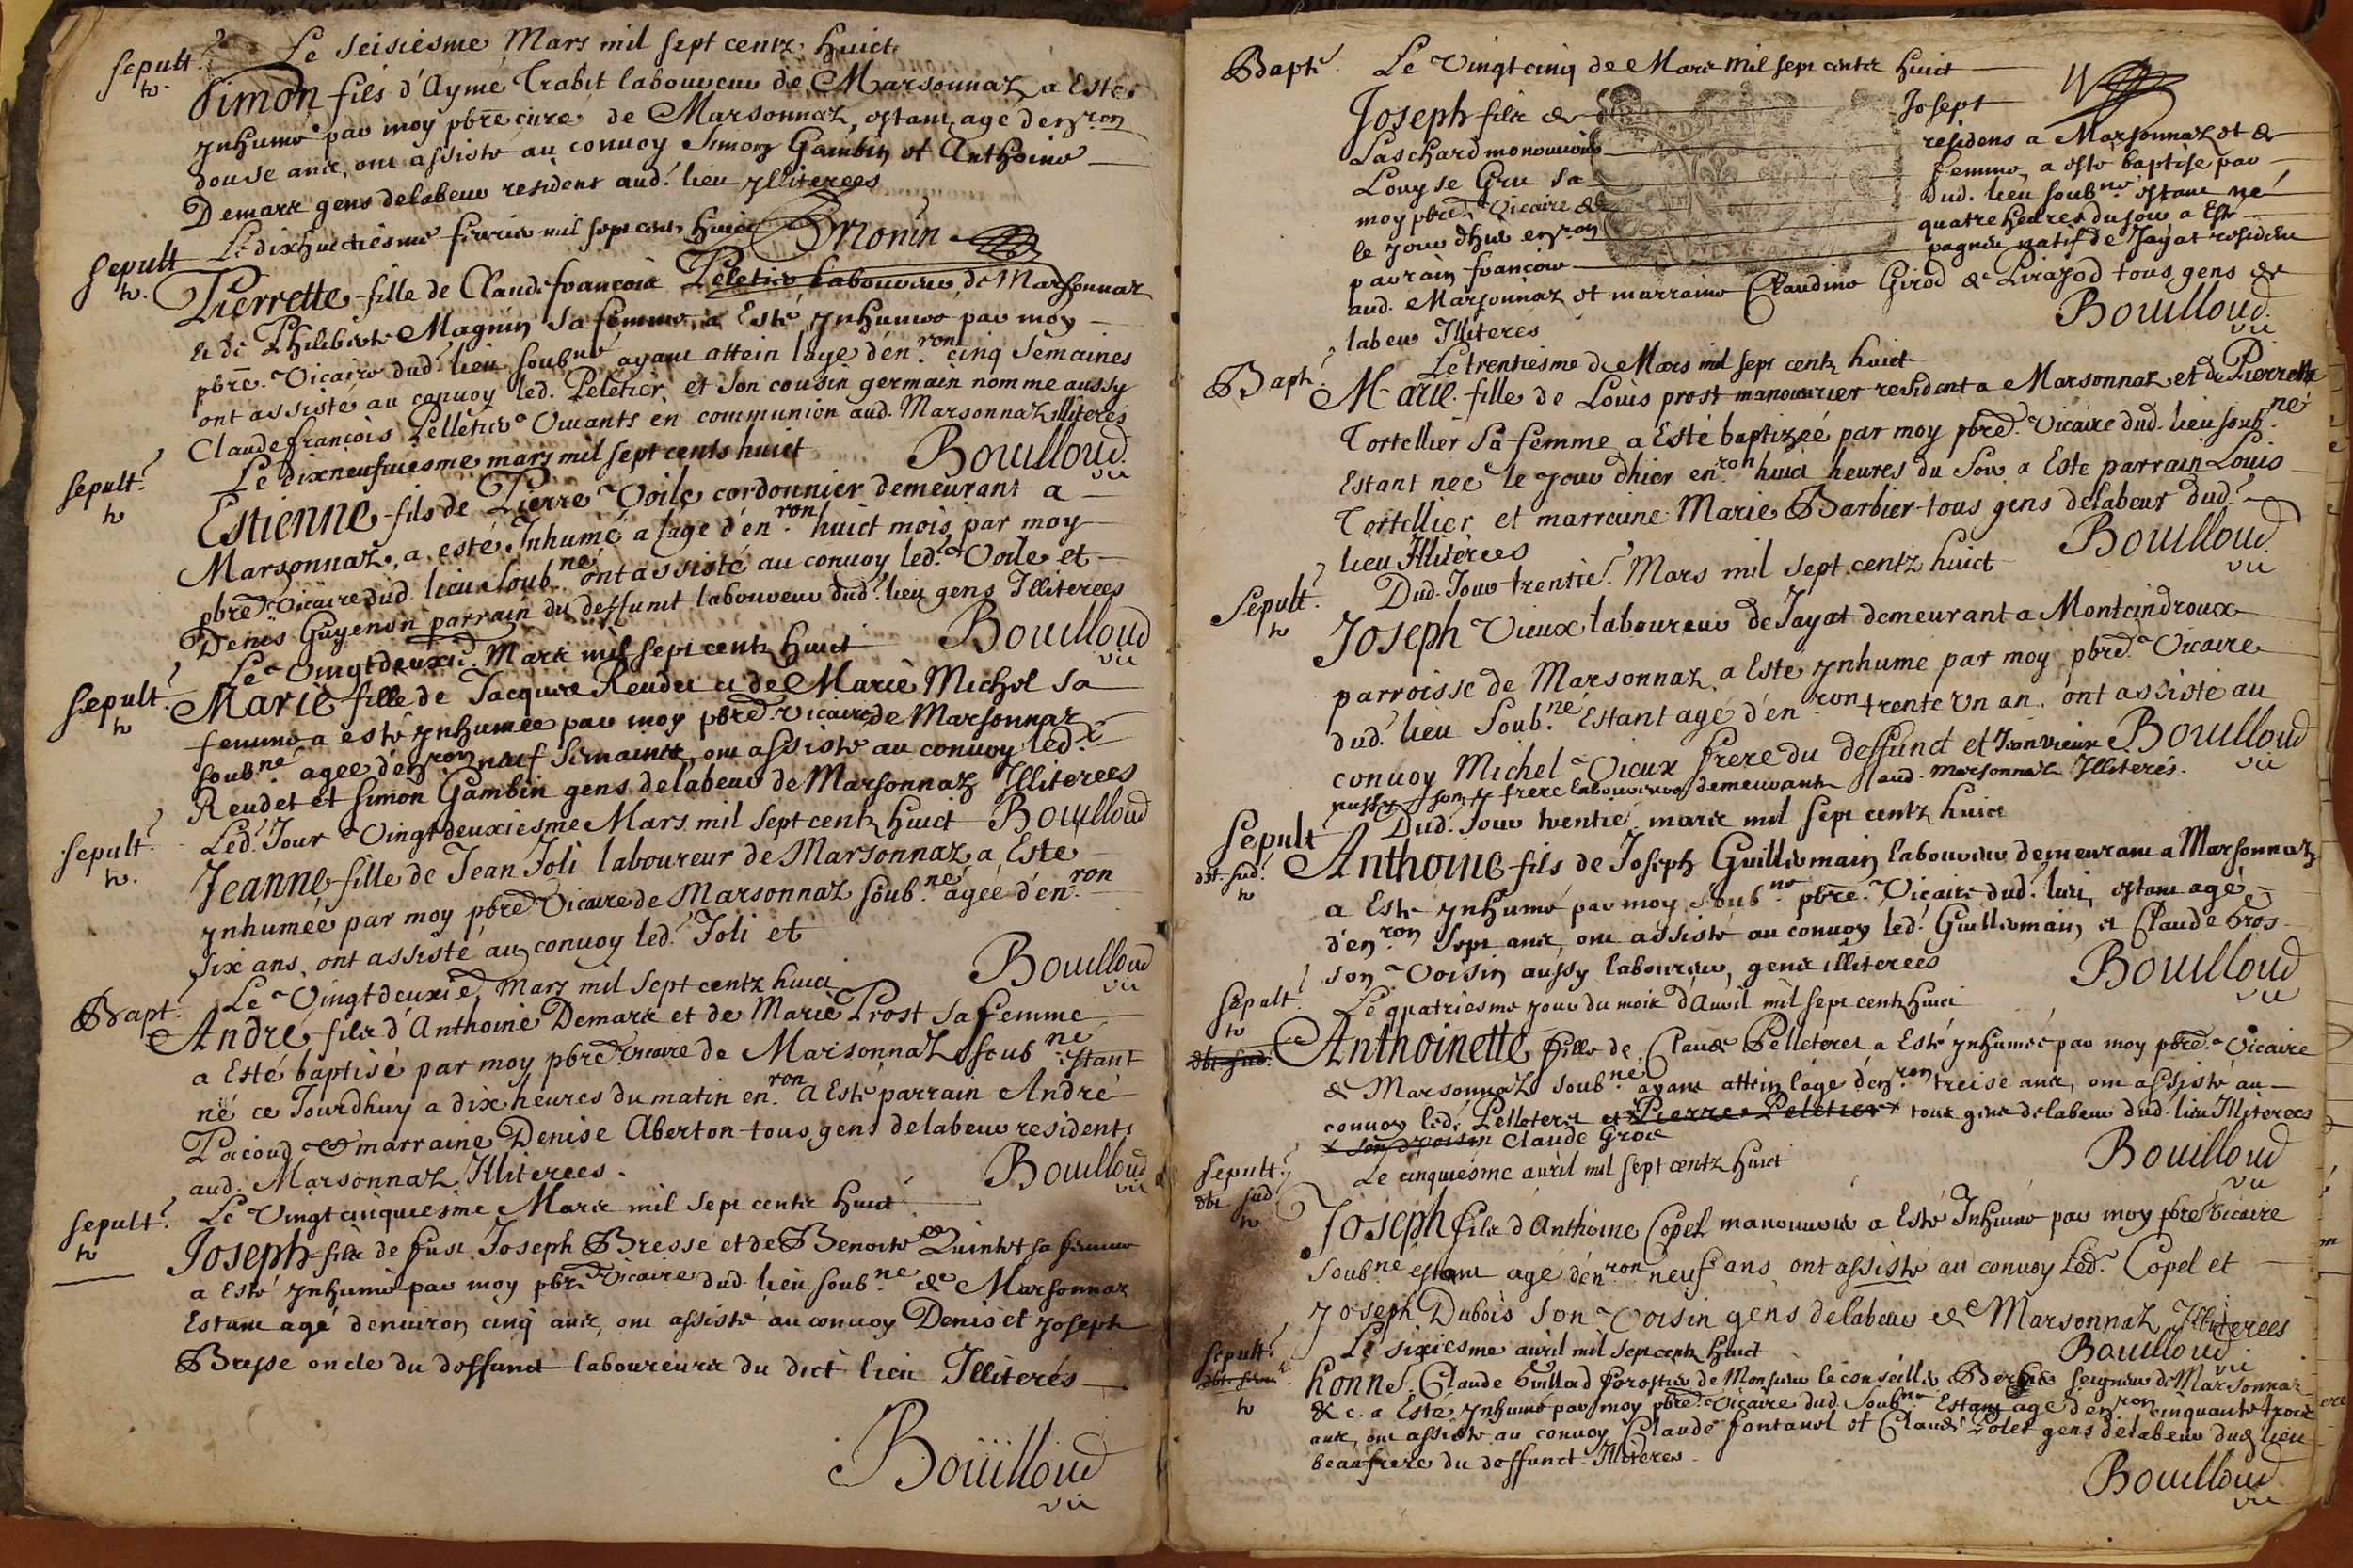 Sepult.
Le seisiesme Mars mil sept centz huict
Simon fils d'Aymé Trabit laboureur de Marsonnaz a Esté
ynhumé par moy pbre curé de Marsonnaz, estant agé d'en.ron
douse ans, ont assisté au convoy Simon Gambin et Anthoine
Demark gens de labeur resident aud. lieu Illiterees
Sepult
Le dixhuictiesme février mil sept cents huict
Pierrette fille de Claude françois Peletier laboureur de Marsonnaz
et de Philiberte Magnin sa femme, a Esté ynhumee par moy
pbre. Vicaire dud. lieu soub.né ayant attein lage d'en.ron cinq Semaines
ont assisté au convoy led. Peletier, et son cousin germain nomme aussy
Claude françois Pelletier Vivants en communion aud. Marsonnaz Illiterés
Bouilloud
vic
Sepult.
Le dixneufuiesme mars mil sept cents huict
Estienne fils de Pierre Voile cordonnier demeurant a
Marsonnaz, a esté Inhumé a lage d'en.ron huict mois, par moy
pbre Vicaire dud. lieu soub.né ont assisté au convoy led. Voile et
Denis Guyenon parrain du deffunct laboureur dud. lieu gens Illiterees
Bouilloud
vic
Sepult.
Le Vingtdeuxie. Mars mil sept centz huict
Marie fille de Jacques Reudet et de Marie Michel sa
femme a esté ynhumee par moy pbre. Vicaire de Marsonnaz
soub.né agee d'en.ron neuf semaines, ont assisté au convoy led.
Reudet et Simon Gambin gens de labeur de Marsonnaz Illiterees
Bouilloud
Sepult.
Led. Jour Vingtdeuxiesme Mars mil sept centz huict
Jeanne fille de Jean Joli laboureur de Marsonnaz a Esté
ynhumée par moy pbre Vicaire de Marsonnaz soub.né agée d'en.ron
six ans, ont assisté au convoy led. Joli et
Bouilloud
vic
Bapt.
Le Vingtdeuxie. Mars mil sept centz huict
André fils d'Anthoine Demark et de Marie Prost sa femme
a Esté baptisé par moy pbre Vicaire de Marsonnaz soub.né Estant
né ce Jourdhuy a dix heures du matin en.ron a Esté parrain André
Pacoud & marraine Denise Aberton tous gens de labeur residents
aud. Marsonnaz Illiterees.
Bouilloud
vic
Sepult.
Le Vingtcinquiesme Mars mil sept cents huict
Joseph fils de fust Joseph Bresse et de Benoite Quintet sa femme
a Esté ynhumé par moy pbre Vicaire dud. lieu soub.né de Marsonnaz
Estant agé denviron cinq ans, ont assisté au convoy Denis et Joseph
Bresse oncle du deffunct laboureurs du dict lieu Illiterés
Boüilloud
vic
Bapt.
Le Vingtcinq de Mars mil sept cents huict
Joseph fils de Josept
Laschard manouvrier residens a Marsonnaz et de
Louyse Gru sa femme, a esté baptisé par
moy pbre. Vicaire dud. lieu soub.né estant né
le jour dhier en.ron quatre heures du soir a Esté
parrain françois pagneu natif de Jayat resident
aud. Marsonnaz et marraine Claudine Girod de Pirajod tous gens de
labeur Illiterés
Bouilloud
vic
Bapt.
Le trentiesme de Mars mil sept centz huict
Marie fille de Louis prost manouvrier resident a Marsonnaz et de Pierrette
Tortellier sa femme a Esté baptizée par moy pbre. Vicaire dud. lieu soub.né
Estant nee le jour dhier en.ron huict heures du soir a Esté parrain Louis
Tortellier et marraine Marie Barbier tous gens de labeur dud.
lieu Illiterees
Bouilloud
vic
Sepult.
Dud. Jour trentie. Mars mil sept centz huict
Joseph Vieux laboureur de Jayat demeurant a Monteindroux
parroisse de Marsonnaz a Esté ynhumé par moy pbre. Vicaire
dud. lieu soub.né Estant agé d'en.ron trente un an. ont assisté au
convoy Michel Vieux frere du deffunct et Jean vieux
aussy son frere laboureurs demeurants aud. Marsonnaz Illiterés.
Bouilloud
vic
Sepult
Dud. Jour trentie. mars mil sept centz huict
Anthoine fils de Joseph Guillermain laboureur demeurant a Marsonnaz
a Esté ynhumé par moy soub.né pbre. Vicaire dud. lieu, estant agé
d'en.ron sept ans, ont assisté au convoy led. Guillermain, et Claude Gros
son Voisin aussy laboureur, gens illiterees
Bouilloud
vic
Sepult.
Le quatriesme jour du mois d'Avril mil sept centz huict
Anthoinette fille de Claude Pelleteret a Esté ynhumée par moy pbre. Vicaire
de Marsonnaz soub.né ayant attein lage d'en.ron treise ans, ont assisté au
convoy led. Pelleteret et Pierre Peletier tous gens de labeur dud. lieu Illiterees
x son voisin Claude Gros
Bouilloud
vic
Sepult.
Le cinquiesme avril mil sept centz huict
Joseph fils d'Anthoine Copel manouvrier a Esté Inhumé par moy pbre Vicaire
soub.né estant agé d'en.ron neuf ans ont assisté au convoy Led. Copel et
Joseph Dubois son Voisin gens de labeur de Marsonnaz Illiterees
Bouilloud
vic
Sepult.
Le sixiesme avril mil sept centz huict
honne. Claude Guillad forestier de Monsieur le conseillier seigneur de Marsonnaz
&c. a Esté ynhumé par moy pbre. Vicaire dud. soub.né Estant agé d'en.ron cinquante trois
ans, ont assisté au convoy Claude fontanel et Claude Polet gens de labeur dud. lieu
beaufrere du deffunct Illiteres
Bouilloud
vic